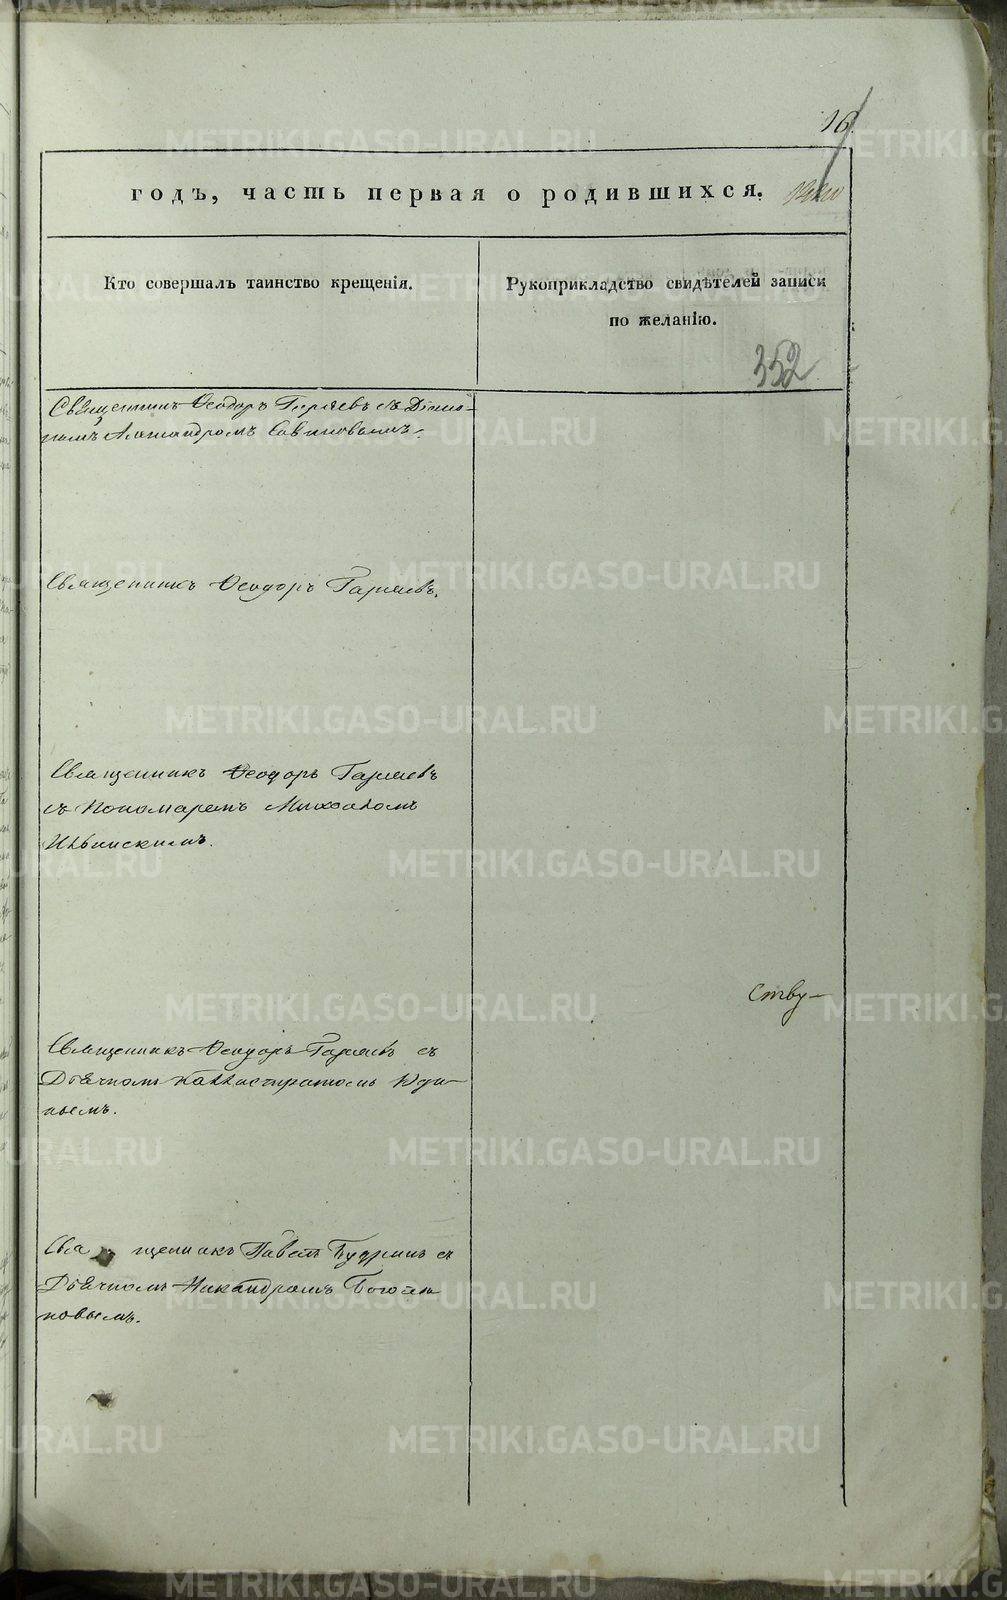 16
годъ, часть первая о родившихся.
Кто совершалъ таинство крещенія.
Рукоприкладство свидѣтелей записи
по желанію.
352
Священникъ Ѳеодоръ Гаряевъ съ Діако-
номъ Александромъ Савиновымъ.
Священникъ Ѳеодоръ Гаряевъ.
Священникъ Ѳеодоръ Гаряевъ
съ Пономаремъ Михаиломъ
Ильинскимъ.
Ству-
Священникъ Ѳеодоръ Гаряевъ съ
Дьячкомъ Каллистратомъ Юди-
нымъ.
Священникъ Павелъ Будринъ съ
Дьячкомъ Никандромъ Богояв
новымъ.
METRIKI.GASO-URAL.RU